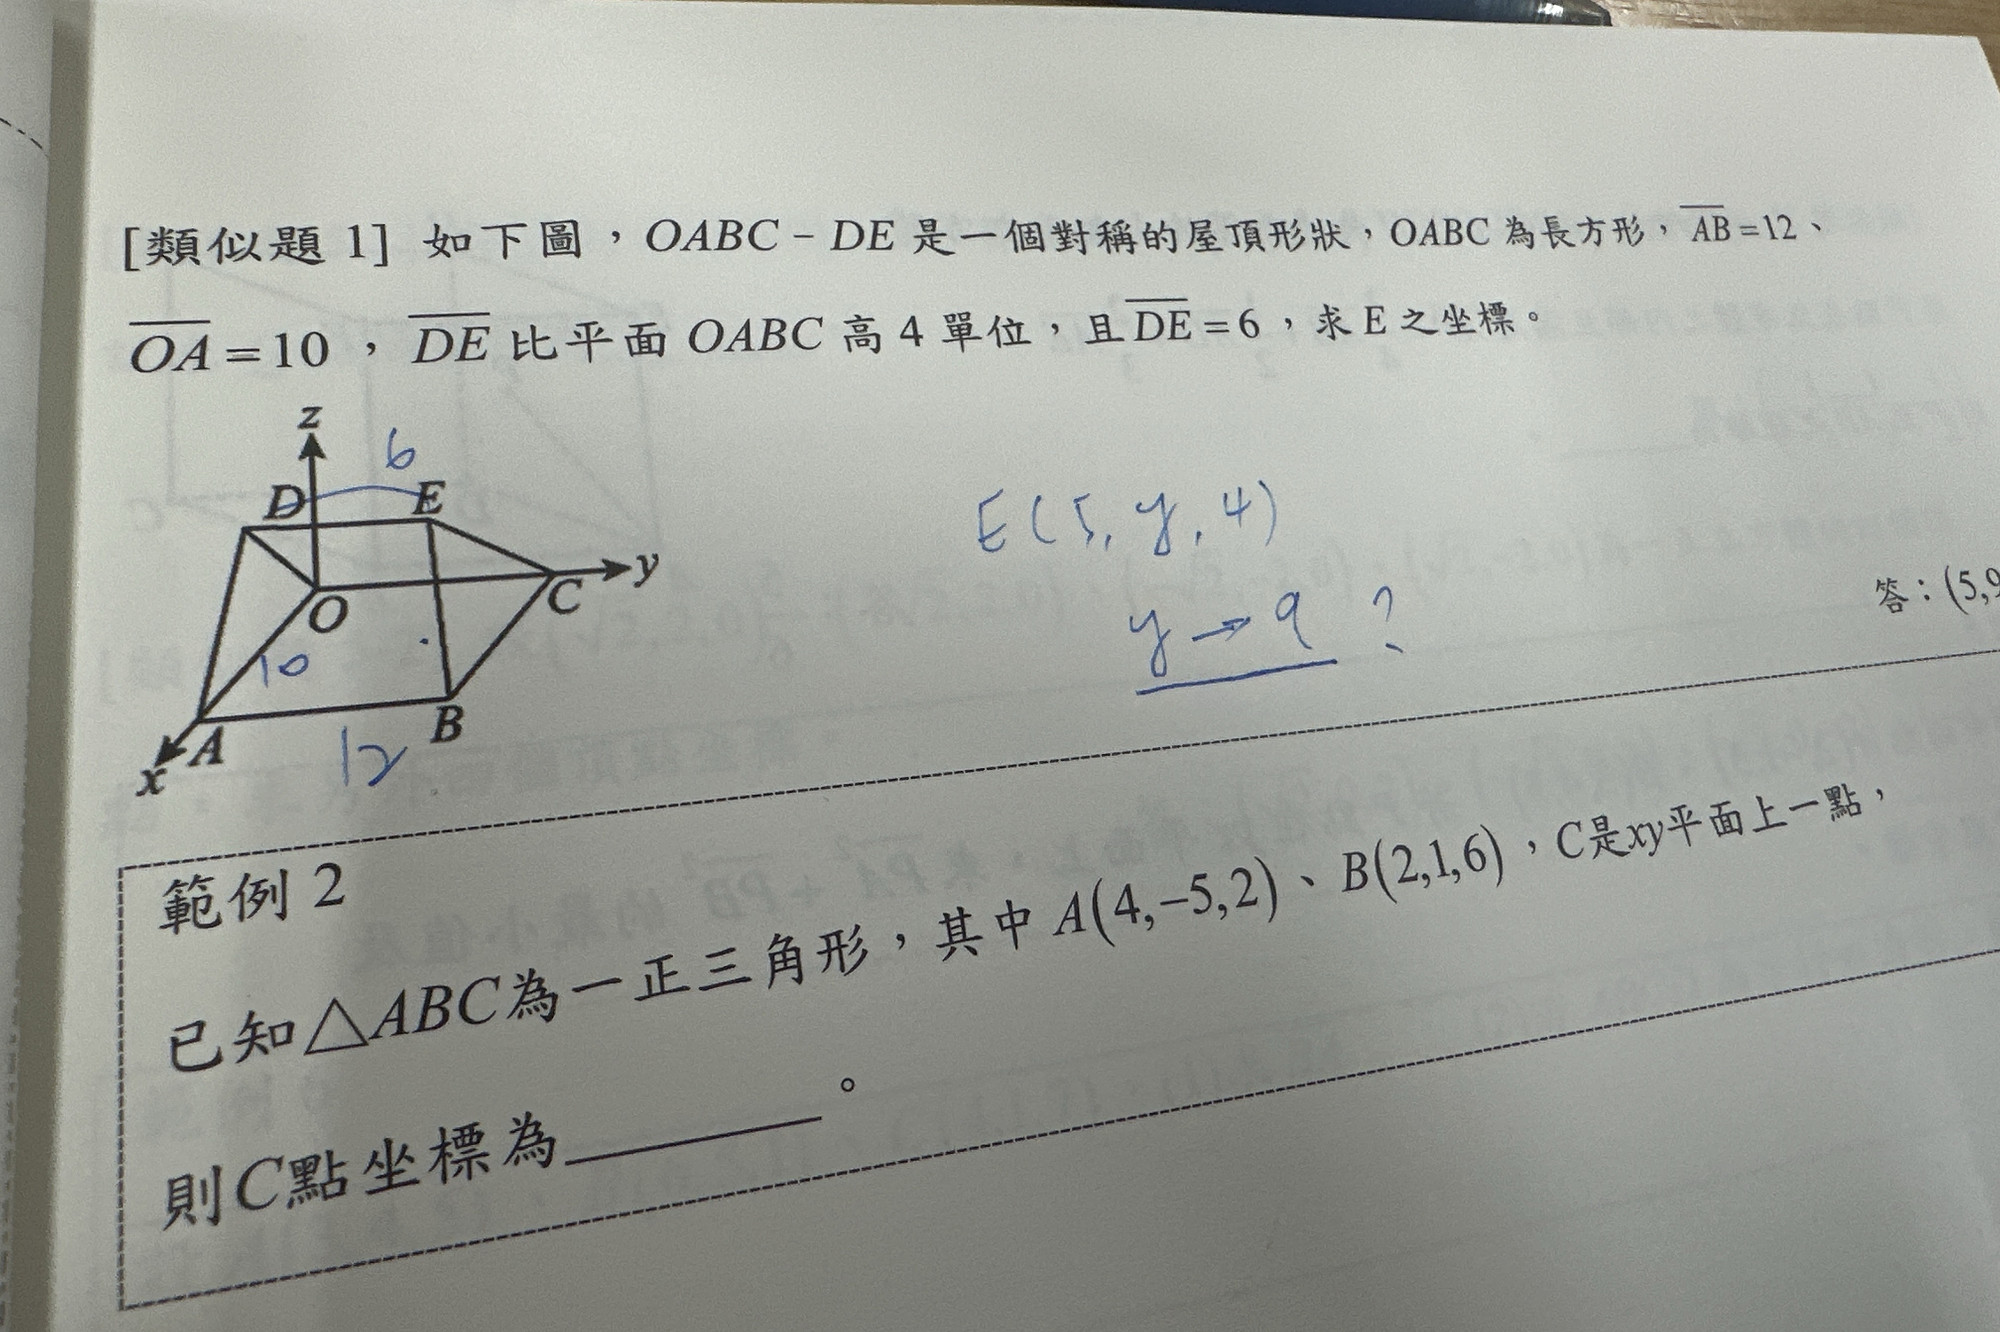 [類似題 1] 如下圖，OABC－DE 是一個對稱的屋頂形狀，OABC 為長方形，AB=12、
OA=10，DE 比平面 OABC 高 4 單位，且DE=6，求 E 之坐標。
z
6
D
E
y
O
C
10
A
B
x
12
E(5, y, 4)
y→9 ?
答：(5,9
範例 2
已知△ABC為一正三角形，其中 A(4,−5,2)、B(2,1,6)，C是xy平面上一點，
則C點坐標為________。